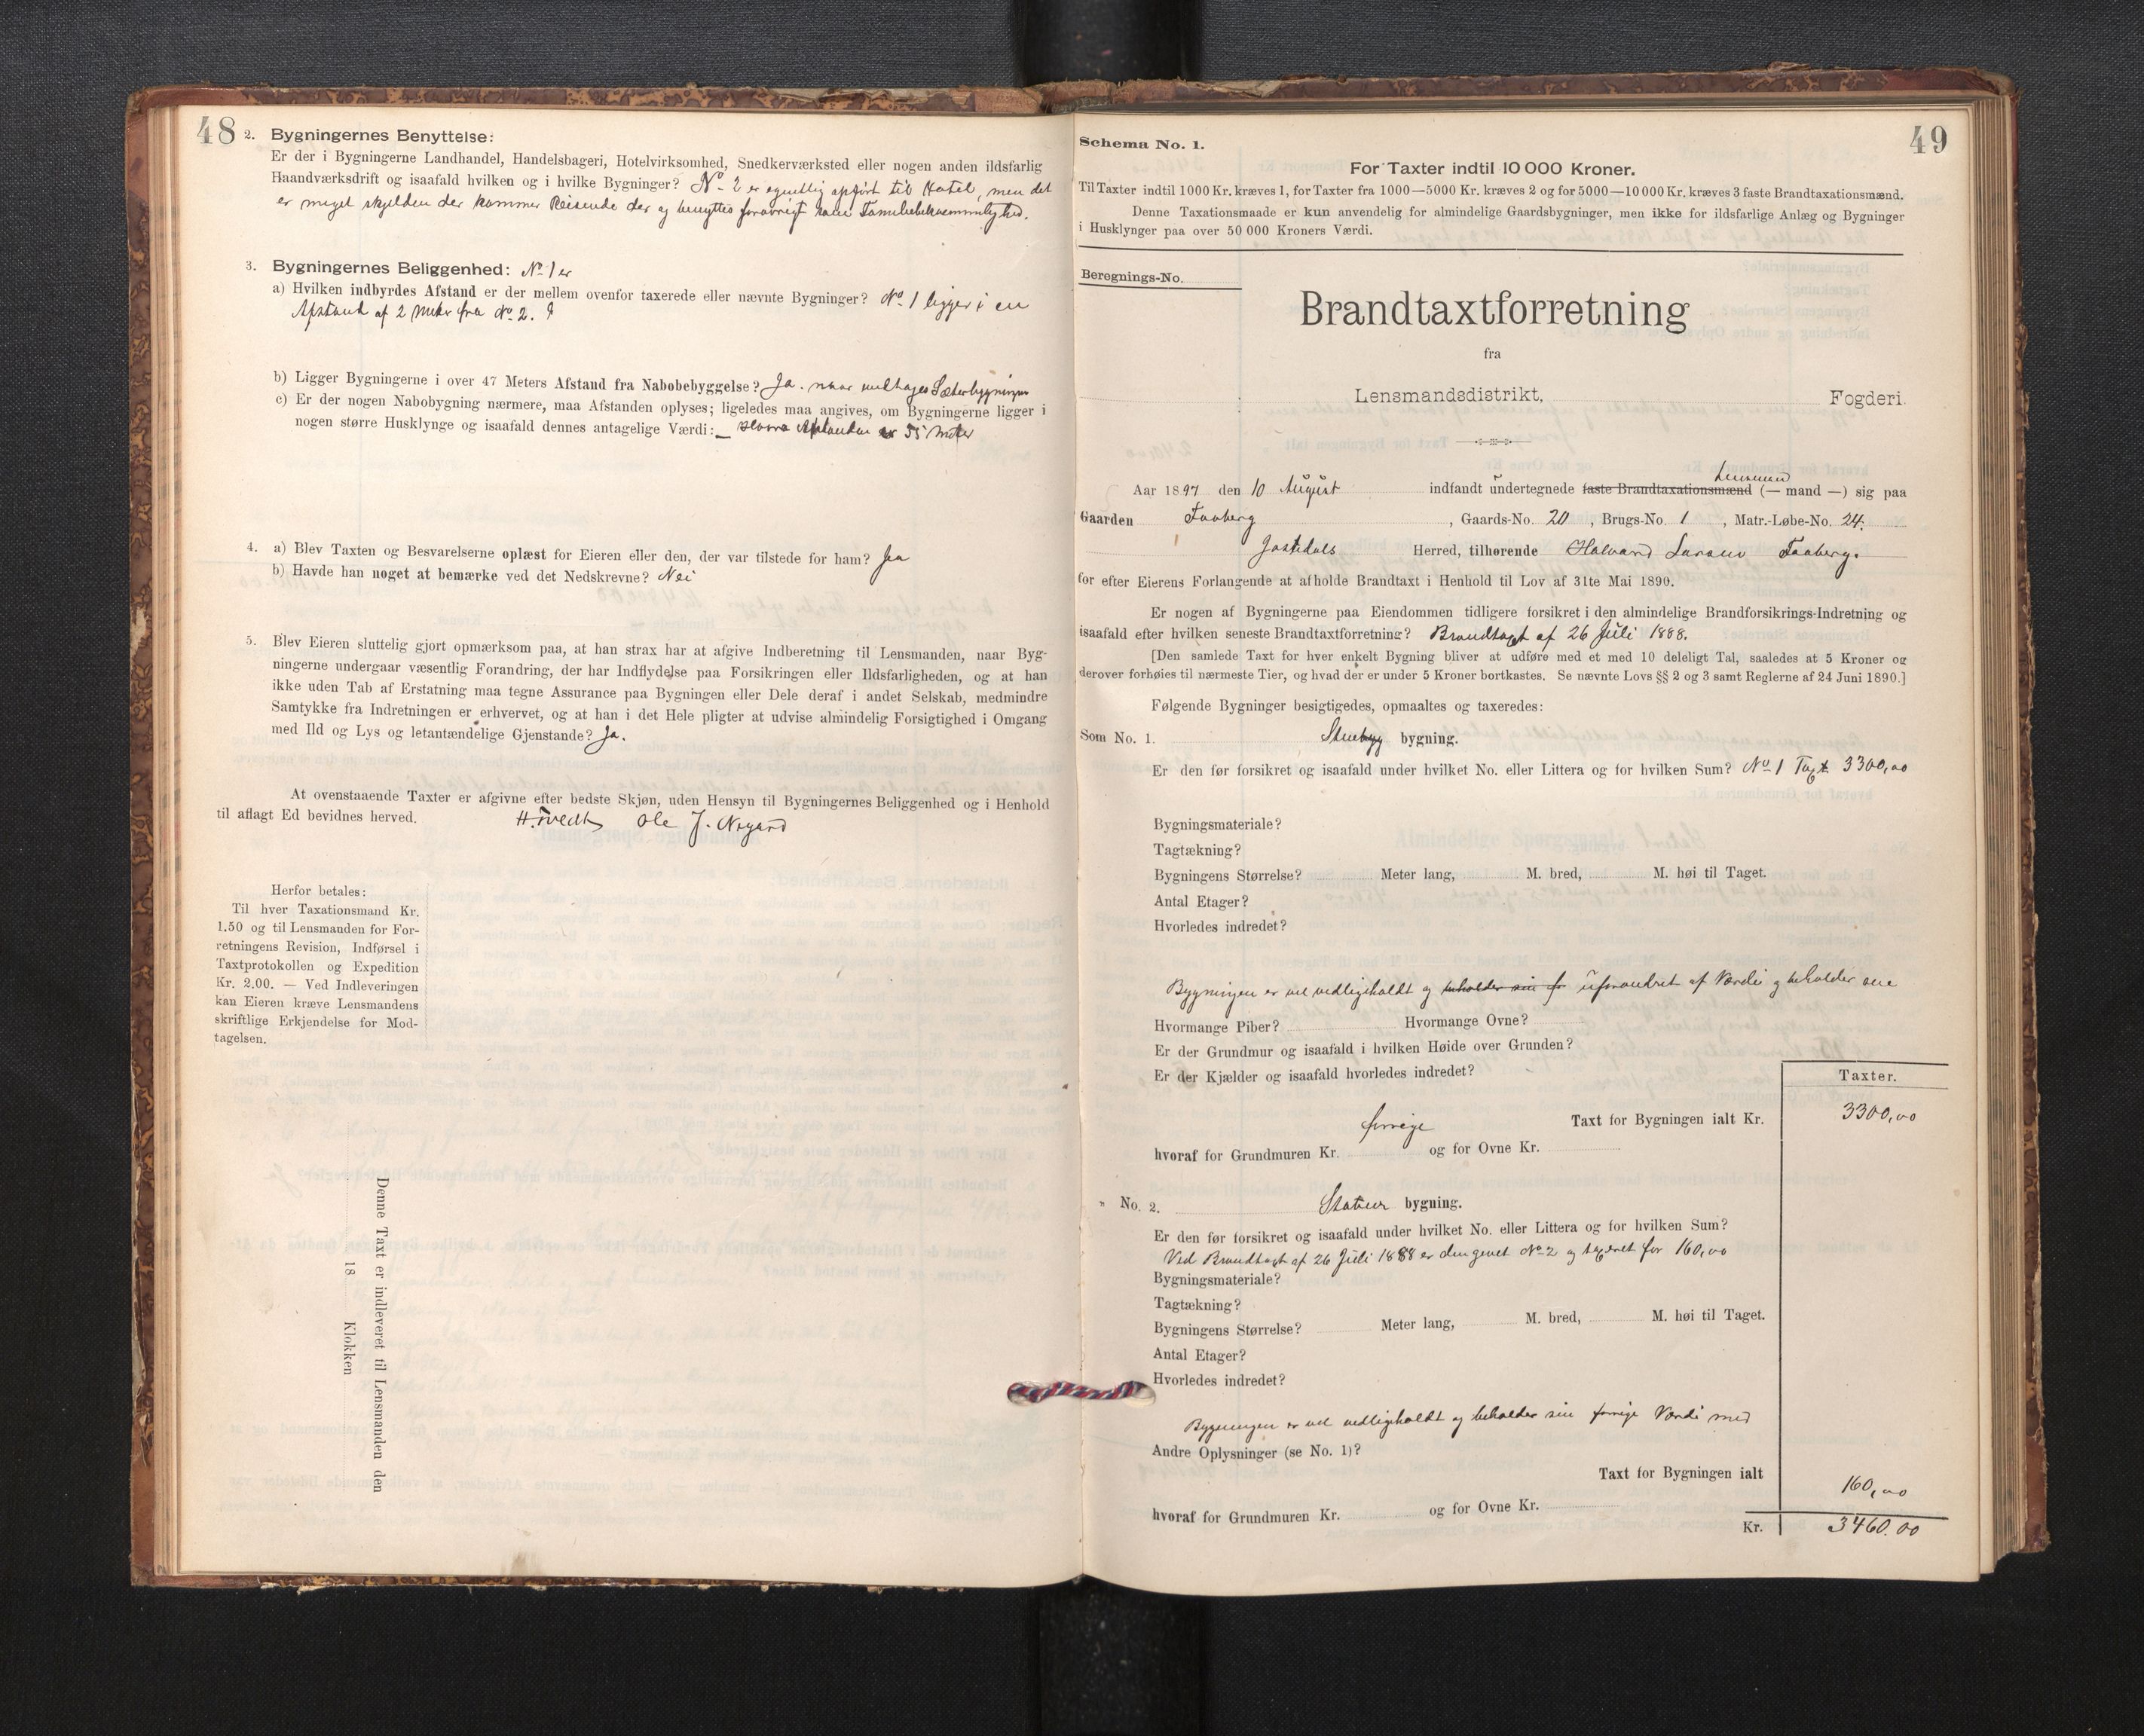 48
2. Bygningernes Benyttelse:
Er der i Bygningerne Landhandel, Handelsbageri, Hotelvirksomhed, Snedkerværksted eller nogen anden ildsfarlig
Haandværksdrift og isaafald hvilken og i hvilke Bygninger? No 2 er egentlig opført til Hotel, men det
er meget skjelden der kommer Reisende der og benyttes forøvrigt som Familiebekvemmelighed.
3. Bygningernes Beliggenhed: No 1 er
a) Hvilken indbyrdes Afstand er der mellem ovenfor taxerede eller nævnte Bygninger? No 1 ligger i en
Afstand af 2 Meter fra No 2.
b) Ligger Bygningerne i over 47 Meters Afstand fra Nabobebyggelse? Ja. naar undtages Sæterbygningen
c) Er der nogen Nabobygning nærmere, maa Afstanden oplyses; ligeledes maa angives, om Bygningerne ligger i
nogen større Husklynge og isaafald dennes antagelige Værdi: Afstanden er 35 Meter
4. a) Blev Taxten og Besvarelserne oplæst for Eieren eller den, der var tilstede for ham? Ja
b) Havde han noget at bemærke ved det Nedskrevne? Nei
5. Blev Eieren sluttelig gjort opmærksom paa, at han strax har at afgive Indberetning til Lensmanden, naar Byg-
ningerne undergaar væsentlig Forandring, der har Indflydelse paa Forsikringen eller Ildsfarligheden, og at han
ikke uden Tab af Erstatning maa tegne Assurance paa Bygningen eller Dele deraf i andet Selskab, medmindre
Samtykke fra Indretningen er erhvervet, og at han i det Hele pligter at udvise almindelig Forsigtighed i Omgang
med Ild og Lys og letantændelige Gjenstande? Ja.
At ovenstaaende Taxter er afgivne efter bedste Skjøn, uden Hensyn til Bygningernes Beliggenhed og i Henhold
til aflagt Ed bevidnes herved. H. Tvedt Ole J. Nygard
Herfor betales:
Til hver Taxationsmand Kr.
1.50 og til Lensmanden for For-
retningens Revision, Indførsel i
Taxtprotokollen og Expedition
Kr. 2.00. — Ved Indleveringen
kan Eieren kræve Lensmandens
skriftlige Erkjendelse for Mod-
tagelsen.
Denne Taxt er indleveret til Lensmanden den
18 Klokken
49
Schema No. 1.
For Taxter indtil 10 000 Kroner.
Til Taxter indtil 1000 Kr. kræves 1, for Taxter fra 1000—5000 Kr. kræves 2 og for 5000—10 000 Kr. kræves 3 faste Brandtaxationsmænd.
Denne Taxationsmaade er kun anvendelig for almindelige Gaardsbygninger, men ikke for ildsfarlige Anlæg og Bygninger
i Husklynger paa over 50 000 Kroners Værdi.
Beregnings-No.
Brandtaxtforretning
fra
Lensmandsdistrikt, Fogderi.
Lensmand
Aar 1897 den 10 August indfandt undertegnede faste Brandtaxationsmænd (— mand —) sig paa
Gaarden Faaberg, Gaards-No. 20, Brugs-No. 1, Matr.-Løbe-No. 24.
Jostedals Herred, tilhørende Halvard Larsen Faaberg.
for efter Eierens Forlangende at afholde Brandtaxt i Henhold til Lov af 31te Mai 1890.
Er nogen af Bygningerne paa Eiendommen tidligere forsikret i den almindelige Brandforsikrings-Indretning og
isaafald efter hvilken seneste Brandtaxtforretning? Brandtaxt af 26 Juli 1888.
[Den samlede Taxt for hver enkelt Bygning bliver at udføre med et med 10 deleligt Tal, saaledes at 5 Kroner og
derover forhøies til nærmeste Tier, og hvad der er under 5 Kroner bortkastes. Se nævnte Lovs §§ 2 og 3 samt Reglerne af 24 Juni 1890.]
Følgende Bygninger besigtigedes, opmaaltes og taxeredes:
Som No. 1. Stuebyg bygning.
Er den før forsikret og isaafald under hvilket No. eller Littera og for hvilken Sum? No 1 Taxt 3300,00
Bygningsmateriale?
Tagtækning?
Bygningens Størrelse? Meter lang, M. bred, M. høi til Taget.
Antal Etager?
Hvorledes indredet?
Bygningen er vel vedligeholdt og beholder sin fr uforandret af Værdi og beholder sine
Hvormange Piber? Hvormange Ovne?
Er der Grundmur og isaafald i hvilken Høide over Grunden?
Er der Kjælder og isaafald hvorledes indredet?
Taxter.
forrige Taxt for Bygningen ialt Kr. 3300,00
hvoraf for Grundmuren Kr. og for Ovne Kr.
" No. 2. bygning.
Er den før forsikret og isaafald under hvilket No. eller Littera og for hvilken Sum?
Ved Brandtaxt af 26 Juli 1888 er den givet No 2 og taxeret for 160,00
Bygningsmateriale?
Tagtækning?
Bygningens Størrelse? Meter lang, M. bred, M. høi til Taget.
Antal Etager?
Hvorledes indredet?
Bygningen er vel vedligeholdt og beholder sin forrige Værdi med
Andre Oplysninger (se No. 1)?
Taxt for Bygningen ialt 160,00
hvoraf for Grundmuren Kr. og for Ovne Kr.
Kr. 3460.00